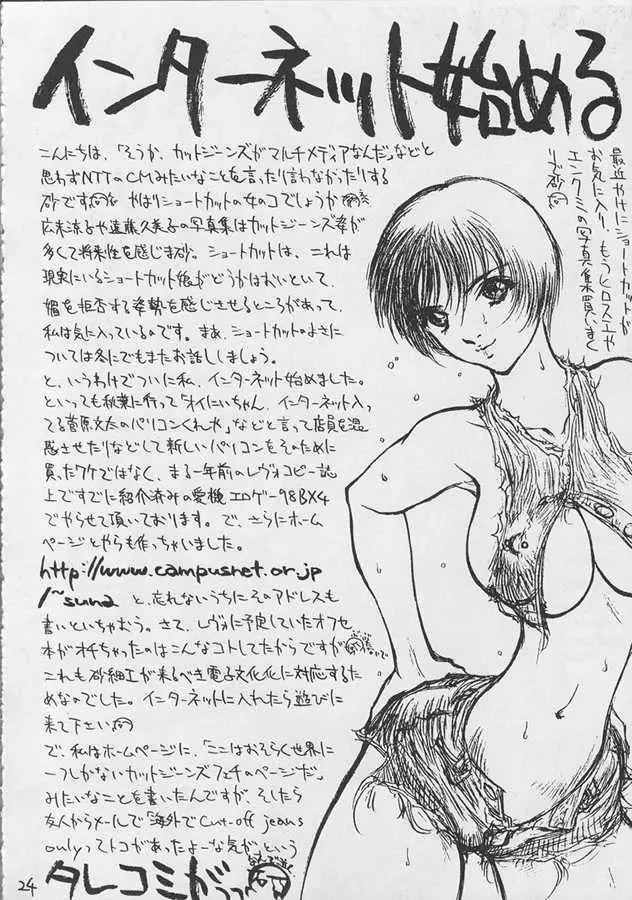 インターネット始める
こんにちは、「そうか、カットジーンズがマルチメディアなんだ」などと
思わずNTTのCMみたいなことを言ったり言わなかったりする
砂です やはりショートカットの女のコでしょうか
広末涼子や遠藤久美子の写真集はカットジーンズ姿が
多くて将来性を感じま砂。ショートカットは、これは
現実にいるショートカット娘がどうかはおいといて、
媚を拒否する姿勢を感じさせるところがあって、
私は気に入っているのです。まあ、ショートカットのよさに
ついては冬にでもまたお話ししましょう。
と、いうわけでついに私、インターネット始めました。
といっても秋葉に行って「オイにいちゃん、インターネット入っ
てる菅原文太のパソコンくれや」などと言って店員を混
惑させたりなどして新しいパソコンをそのために
買ったワケではなく、まる一年前のレヴォコピー誌
上ですでに紹介済みの愛機、エロゲー98BX4
でやらせて頂いております。で、さらにホーム
ページとやらも作っちゃいました。
http://www.campusnet.or.jp
/~suna と、忘れないうちにそのアドレスも
書いといちゃおう。さて、レヴォに予定していたオフセ
本がオチちゃったのはこんなコトしてたからですが
これも砂細工が来るべき電子文化化に対応するた
めなのでした。インターネットに入れたら遊びに
来て下さい
で、私はホームページに、「ここはおそらく世界に
一つしかないカットジーンズフェチのページだ」
みたいなことを書いたんですが、そしたら
友人からメールで「海外でCut-off jeans
onlyってトコがあったよーな気が」という
タレコミがっっ
最近やけにショートカットが
お気に入り、もうヒロスエや
エンクミの写真集買いまく
りズ砂
24